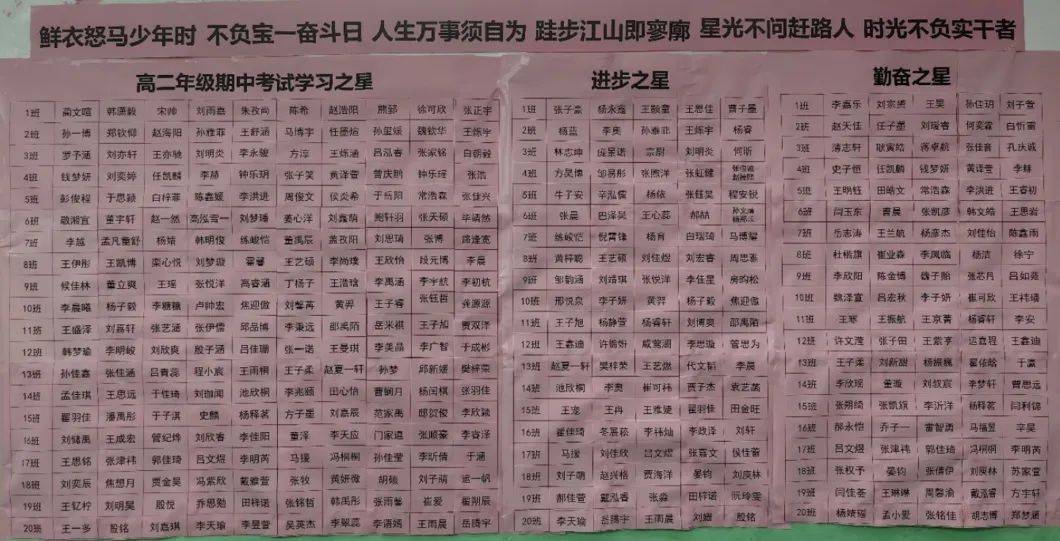 鲜衣怒马少年时 不负宝一奋斗日 人生万事须自为 跬步江山即寥廓 星光不问赶路人 时光不负实干者
高二年级期中考试学习之星
1班 蔺文暄 韩潇毅 宋帅 刘雨嘉 朱孜尚 陈希 赵浩阳 熊郅 徐可欣 张正宇
2班 孙一博 郑钦仰 赵海阳 孙雅菲 王舒涵 马博宇 任墨焓 孙玺媛 魏钦华 王烁宇
3班 罗予涵 刘亦轩 王亦驰 刘明炎 李永骏 方淳 王烁涵 吕泓春 张家铭 白朝毅
4班 钱梦妍 刘奕婷 任凯麟 李赫 钟乐玥 张子笑 黄译萱 曾庆鹏 钟乐瑶 张浩
5班 彭俊程 于思颍 白梓菲 陈鑫媛 李洪进 周俊文 侯炎希 于岳阳 常浩森 张佳兴
6班 敬湘宜 董宇轩 赵一然 高泓雪一 刘梦瑾 姜心洋 刘鑫萌 鲍轩羽 张天硕 毕靖然
7班 李越 孟凡童舒 杨婧 韩明俊 练峻恺 董禹辰 盖孜阳 刘思琦 张博 路逢宽
8班 王伊彤 王凯博 栾心悦 刘梦璇 霍睿 王艺硕 李尚璞 王欣怡 段元博 李晨
9班 候佳林 董立爽 王瑶 张悦洋 高睿涵 丁杨子 王浩琀 李禹涵 李宇航 李初杭
10班 李晨曦 杨子毅 李穗穗 卢帅宏 焦迎傲 刘馨苒 黄羿 王子睿 张钰哲 龚源源
11班 王盛泽 刘嘉轩 张艺涵 张伊儒 邱岳博 李秉远 邵禹陌 岳米祺 王子旭 贾双泽
12班 韩梦瑜 李明峻 刘欣爽 殷子涵 吕佳珊 张一诺 王曼琪 李美晶 李广智 于成彬
13班 孙佳鑫 张佳涵 吕青蕊 程小宸 王雨桐 王子柔 赵夏一轩 孙梦 邱新媛 樊梓荣
14班 孟佳琪 王思远 于佳琦 刘珈闻 池欣航 李兆颐 田心怡 曹娴月 杨闰棋 张羽佳
15班 翟羽佳 潘禹彤 于子淇 史麟 杨释茗 方子墨 刘嘉辰 范家禹 邸贺俊 李欣颖
16班 刘储禹 王成宏 管纪烨 刘欣睿 李佳阳 董泽 李天应 门家道 张顺豪 李睿泽
17班 王思铭 张津祎 郭佳琦 吕文煜 李明芮 马瑗 冯桐桐 孙佳莹 李昕倩 于涵
18班 刘奕辰 焦想月 贾金昊 冯紫欣 戴雅萱 张牧 黄妍微 胡磁 刘子萌 运一帆
19班 王钇柠 刘明昊 殷悦 乔思勉 田梓诺 张锦哲 韩禹彤 张雨馨 崔爱 翟朔辰
20班 王一多 殷铭 刘嘉琪 李天瑜 李昱萱 吴英杰 李翠蕊 李语嫣 王雨晨 岳腾宇
进步之星
1班 张子豪 杨永鑫 王颢童 王思佳 曹子墨
2班 杨蓝 李奥 孙泰菲 王烁宇 杨睿
3班 林志坤 庞景诺 宗尉 刘明炎 何昕
4班 方昊博 邹易彤 张煦洋 张虹耀
5班 牛子安 辛泓儒 杨依 张钰昊 程安锐
6班 张晨 巴泽昊 王心蕊 郝喆
7班 练峻恺 倪霄锋 杨育 白瑞琦 马博玺
8班 黄梓聪 王艺硕 刘佳煜 刘宏睿 周思嘉
9班 邹韵涵 刘靖琪 张悦洋 李佳星 房昀松
10班 邢悦泉 李子妍 黄羿 杨子毅 焦迎傲
11班 王子旭 杨静萱 杨睿轩 刘博奥 邵禹陌
12班 王鑫迪 许锦妍 戚莺涵 李思璇 管思为
13班 赵夏一轩 樊梓荣 王艺燃 代文韬 李晨
14班 池欣航 李奥 崔可祎 贾子杰 袁艺菡
15班 王宠 王冉 王雅婕 翟羽佳 田金旺
16班 崔佳琦 冬晨崧 李祎灿 李政泽 刘轩
17班 马瑗 刘佳欣 吕文煜 张嘉文 侯佳蕾
18班 刘子萌 赵兴格 贾海洋 晏钧 刘庚林
19班 郝佳萱 戴泓睿 张淼 田梓诺 阮玲雯
20班 李天瑜 岳腾宇 王雨晨 刘媛 殷铭
勤奋之星
1班 李嘉乐 刘宗赟 王昊 孙仕玥 刘子萱
2班 赵天佳 任子墨 刘瑷睿 何奕霏 白忻雷
3班 薄志轩 耿寅皓 蒋卓航 张佳音 孔庆诚
4班 史子恒 任凯麟 钱梦妍 黄译萱 李赫
5班 王明钰 田皓文 常浩森 李洪进 王睿初
6班 闫玉东 曹晨 张凯彦 韩文皓 王思岩
7班 岳志涛 王兰航 杨彦杰 刘佳怡 陈鑫雨
8班 杜楷旗 崔业森 李凤临 杨洁 徐宁
9班 李欣阳 陈金博 魏子贻 张芯月 吕如蕴
10班 魏泽宣 吕宏秋 李子妍 崔可欣 王祎禧
11班 王寒 王振航 王京菁 杨睿轩 李安
12班 许文滢 张子田 王紫亭 运嘉程 王鑫迪
13班 王子柔 刘新甜 杨振巍 翟依晗 于赢
14班 李欣瑶 董璇 刘叙宸 李梦轩 曾思远
15班 张朔绮 张凯旗 李沂洋 杨释茗 闫利锦
16班 郝永恺 乔子一 雷智勇 马福昱 辛昊
17班 吕文煜 张津祎 郭佳琦 冯桐桐 李明芮
18班 张权予 晏钧 张倩伊 刘庚林 苏家萱
19班 闫佳荟 王琳琳 周馨渝 戴泓睿 方宇轩
20班 杨婧瑶 孟小爱 张铭佳 胡志博 郑梦涵